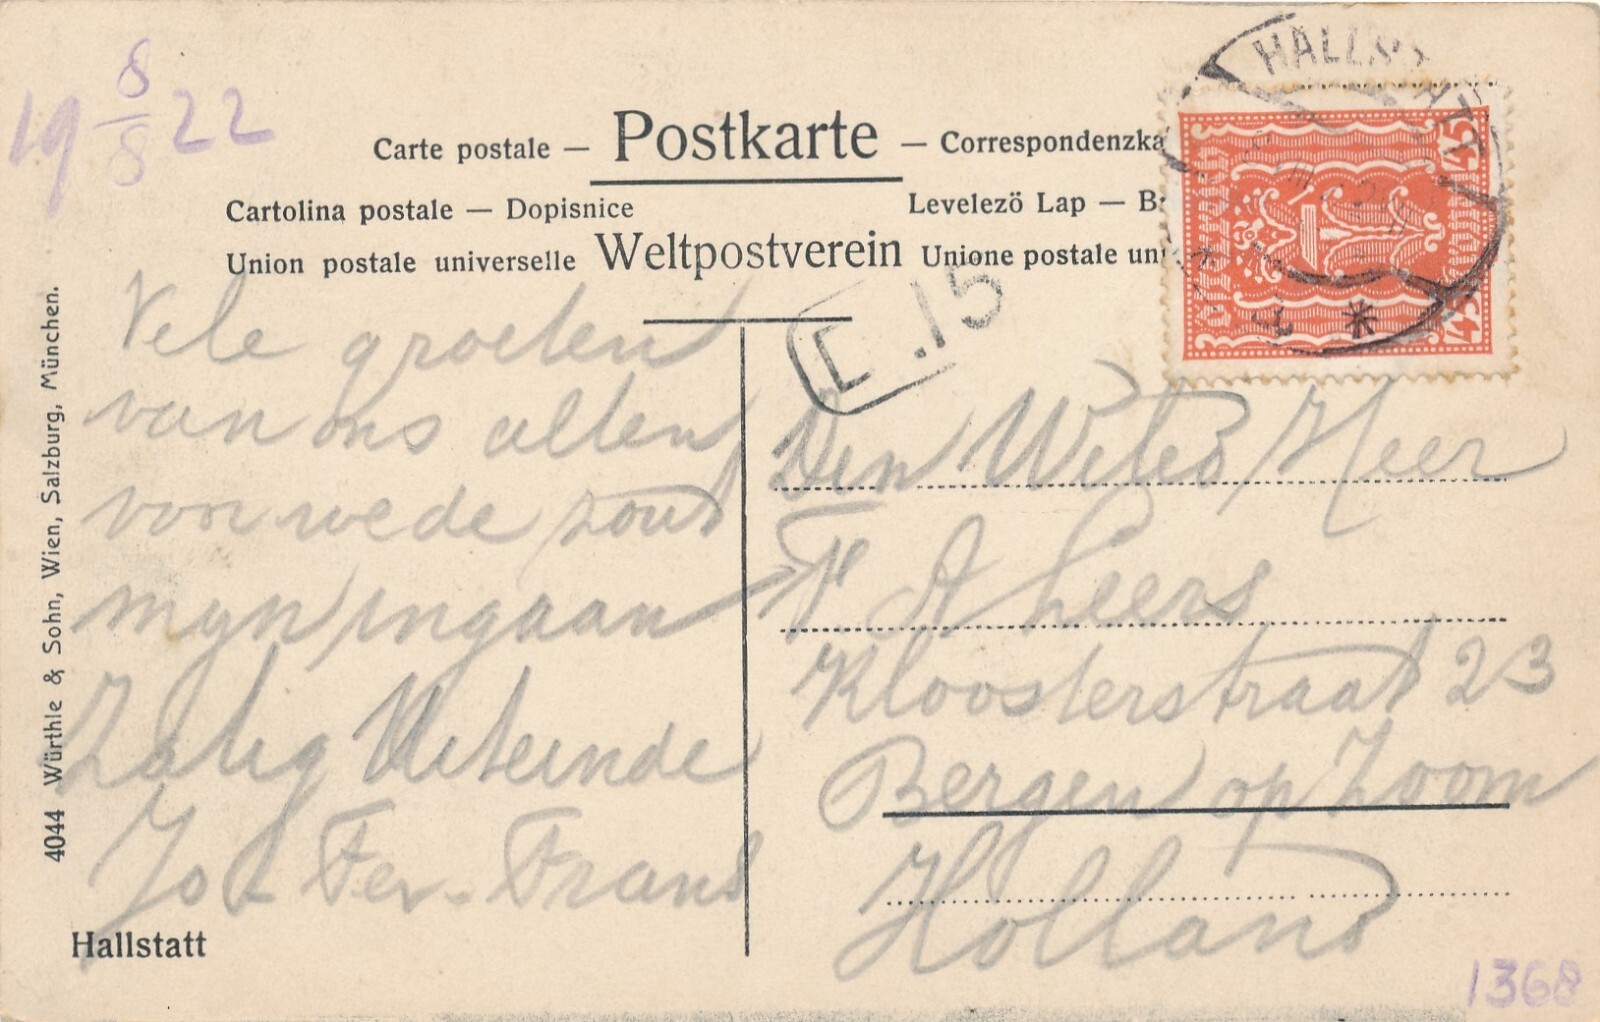 19 8/8 22
Carte postale — Postkarte — Correspondenzka
Cartolina postale — Dopisnice
Levelezö Lap — B
Union postale universelle Weltpostverein Unione postale uni
HALLSTATT
45 45
L .15
Vele groeten
van ons allen
voor we de
mijn ingaan
Zalig Uiteinde
Jos Fer. Frans
Den Weled Heer
F. A Leers
Kloosterstraat 23
Bergen op Zoom
Holland
4044 Würthle & Sohn, Wien, Salzburg, München.
Hallstatt
1368